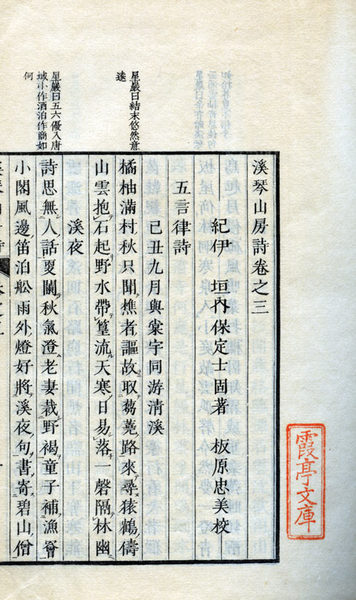 霞亭文庫
溪琴山房詩卷之三
紀伊 垣內保定士固著 板原忠美校
五言律詩
己丑九月與棠宇同游清溪
橘柚滿村秋只聞樵者謳故取蒭蕘路來尋猿鶴儔
山雲抱石起野水帶篁流天寒日易落一磬隔林幽
溪夜
詩思無人話夏闌秋氣澄老妻裁野褐童子補漁罾
小閣風邊笛泊舩雨外燈好將溪夜句書寄碧山僧
星巖曰結末悠然意
遠
星巖曰五六優入唐
域小作酒泊作商如
何